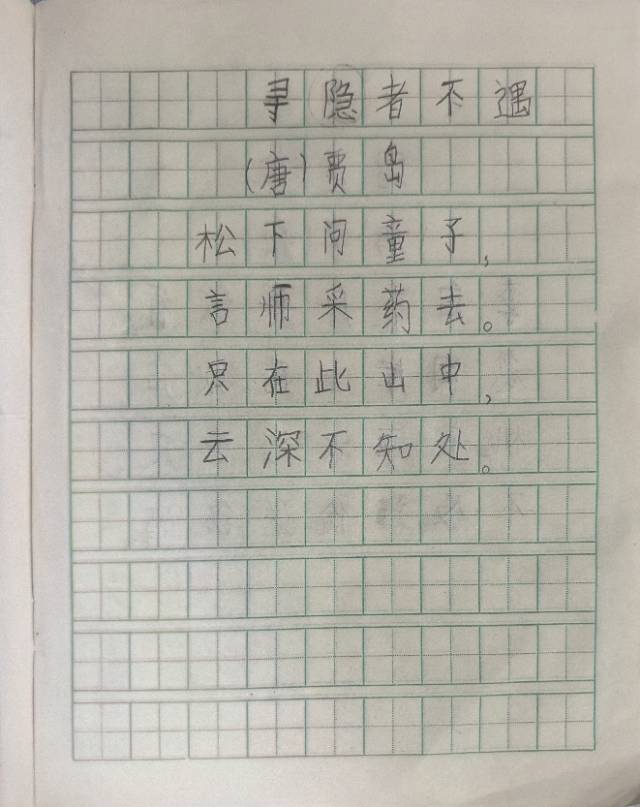 寻隐者不遇
(唐)贾岛
松下问童子,
言师采药去。
只在此山中,
云深不知处。